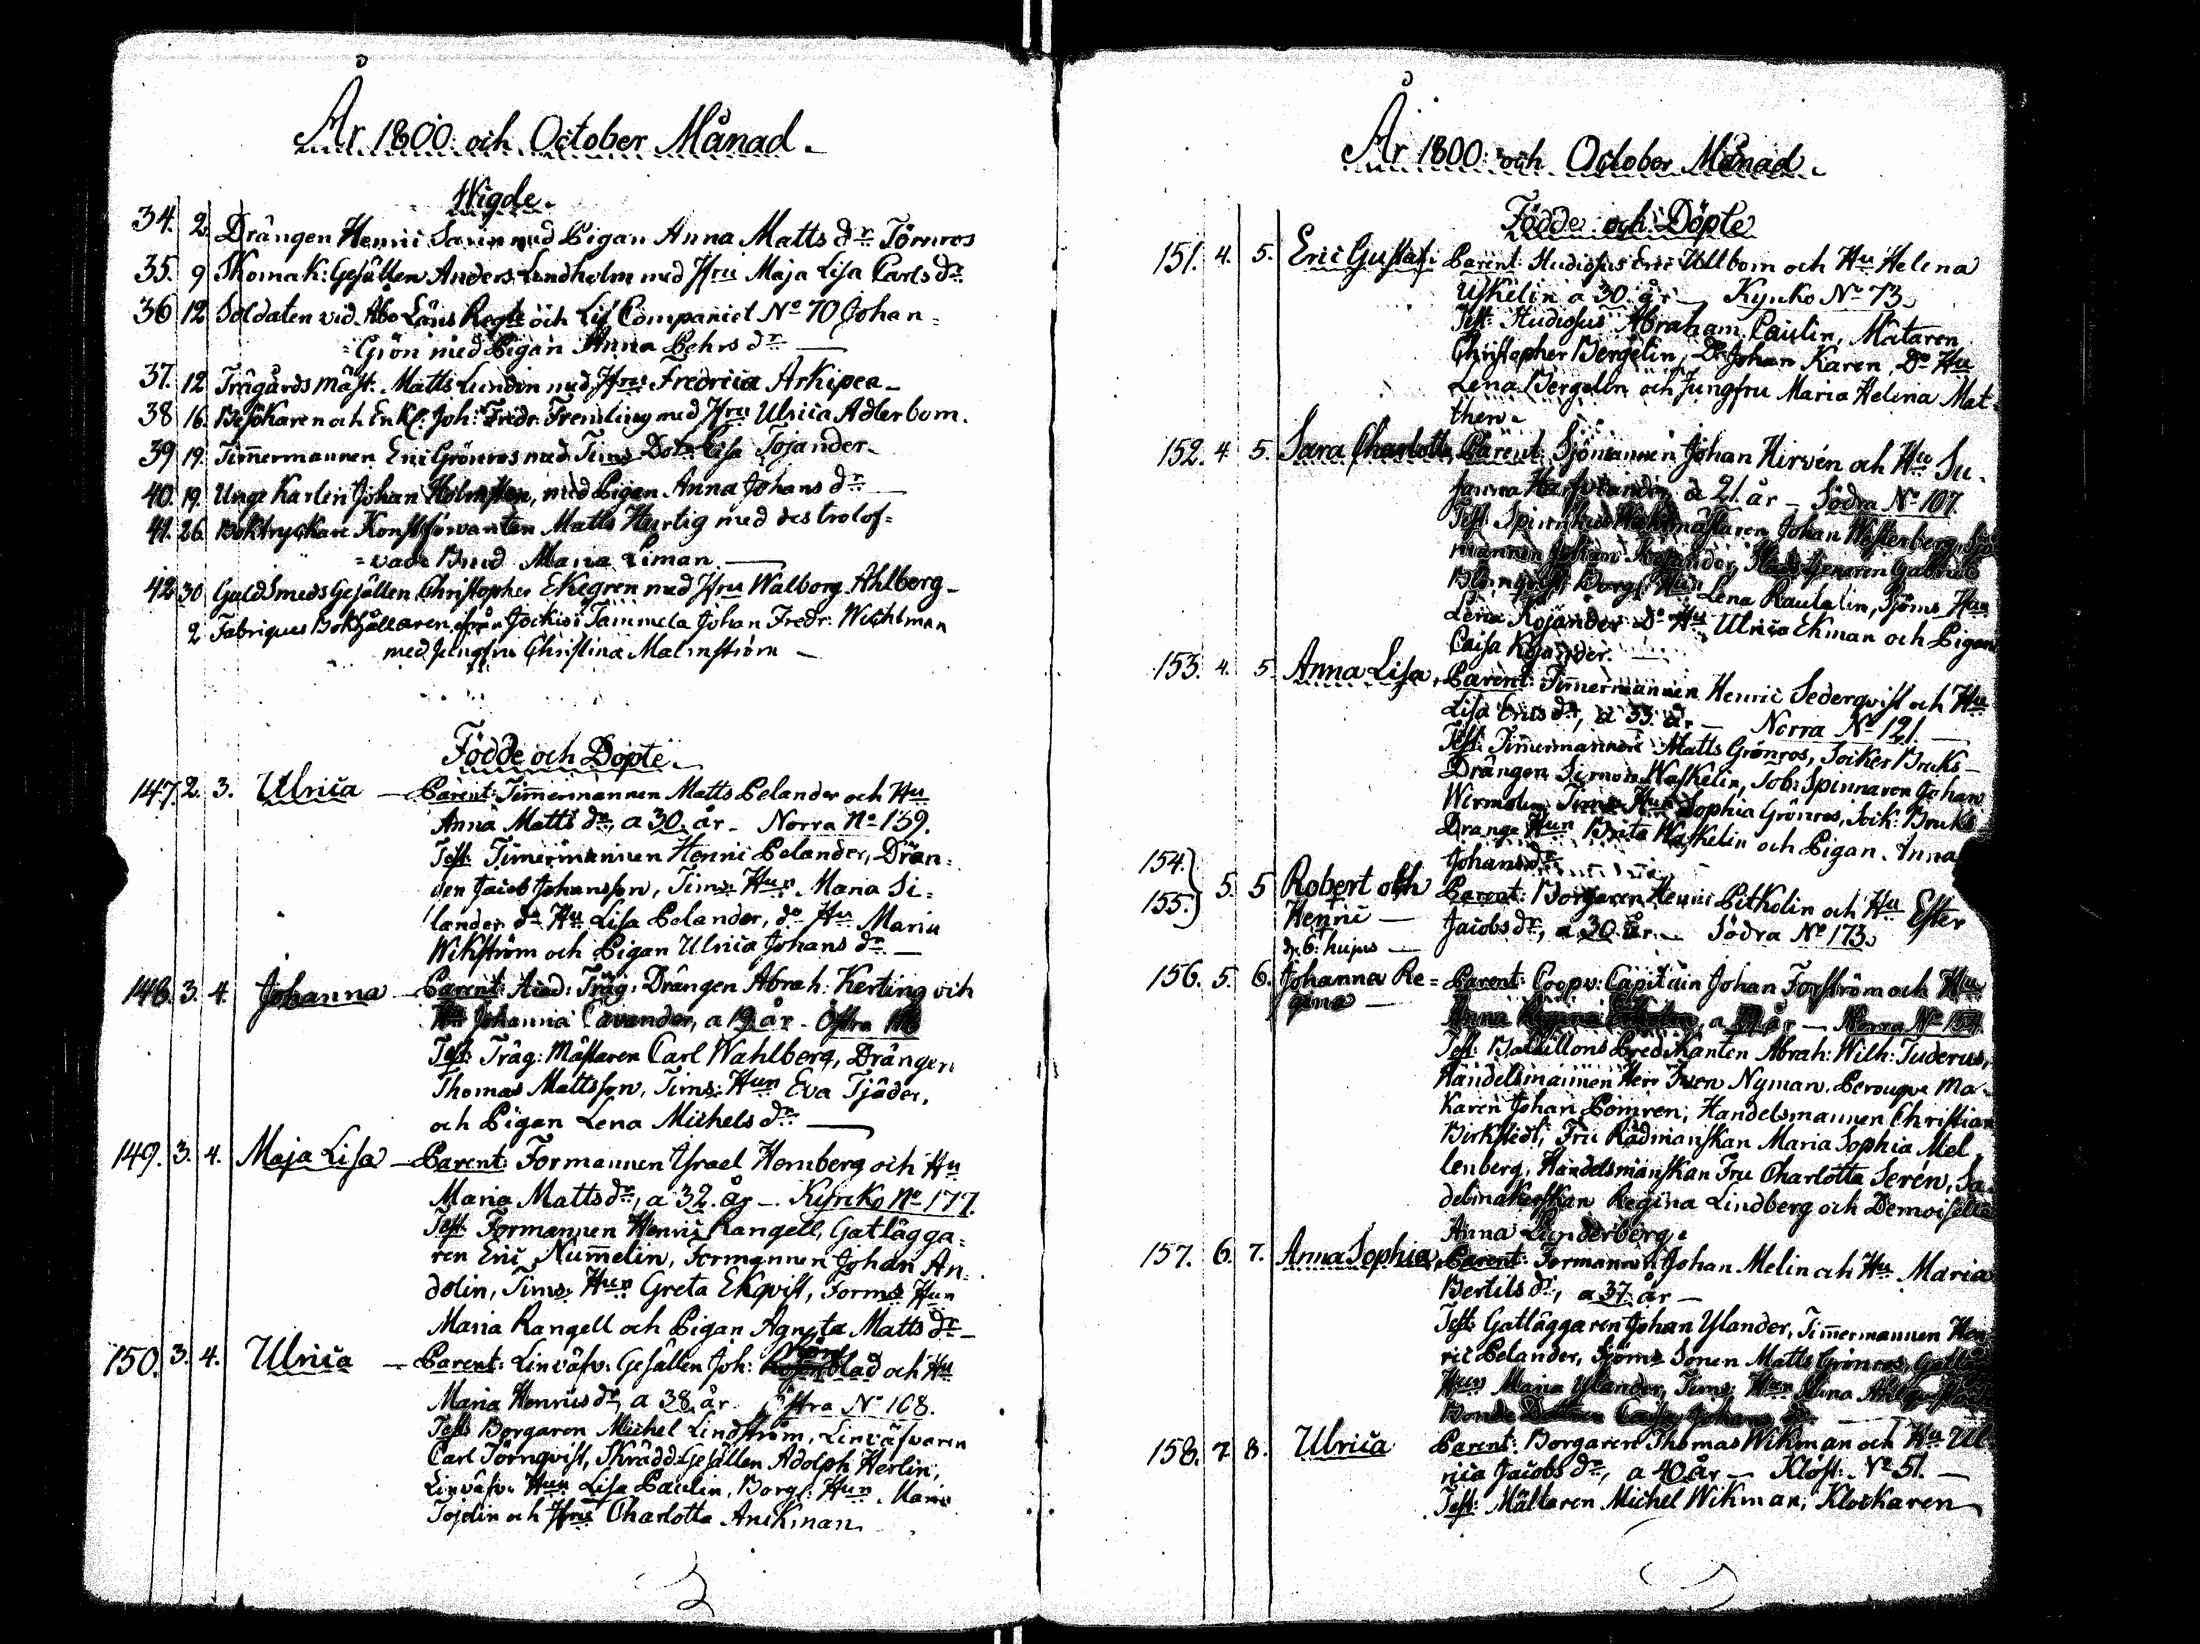 År 1800 och October Månad.
Wigde.
34. 2. Drängen Henric Sarin med Pigan Anna Matts dr. Törnros
35. 9 Skomak: Gesällen Anders Lindholm med Jfru Maja Lisa Carls dr.
36 12 Soldaten vid Åbo Läns Regte och Lif Companiet No 70 Johan =
= Grön med Pigan Anna Pehrs dr. —
37. 12 Trägårds mäst. Matts Lundin med Jfru Fredrica Arkipea —
38 16. Besökaren och Enkl: Joh: Fredr. Fremling med Jfru Ulrica Adlerbom.
39 19. Timmermannen Eric Grönros med Tims Dotr. Lisa Tojander —
40. 19. Unge Karlen Johan Holmsten, med Pigan Anna Johans dr. —
41. 26 Boktryckare Konstförvanten Matts Hurtig med des trolof=
= vade Brud Maria Liman —
42 30 Guldsmeds Gesällen Christopher Ekegren med Jfru Walborg Ahlberg —
2 Fabriques Bokhållaren ifrån Jockis i Tammela Johan Fredr: Wichtman
med Jungfru Christina Malmström —
Födde och Döpte.
147. 2. 3. Ulrica — Parent: Timmermannen Matts Pelander och Hu
Anna Matts dr, a 30. år — Norra No 139.
Test: Timmermannen Henric Pelander, Drän=
gen Jacob Johansson, Tims: Hun Maria Si=
lander do Hu Lisa Pelander, do Hu Maria
Wikström och Pigan Ulrica Johans dr. —
148. 3. 4. Johanna — Parent: Acad: Träg: Drängen Abrah: Kerting och
Hu Johanna Cavander, a 19 år — Östra
Test: Träg: Mästaren Carl Wahlberg, Drängen
Thomas Mattsson, Tims: Hun Eva Tjäder,
och Pigan Lena Michels dr. —
149. 3. 4. Maja Lisa — Parent: Formannen Ysrael Hemberg och Hu
Maria Matts dr, a 32. år — Kyrcko No 177.
Test. Formannen Henric Rangell, Gatlägga=
ren Eric Nummelin, Formannen Johan An=
dolin, Tims: Hun Greta Ekqvist, Forms Hun
Maria Rangell och Pigan Agneta Matts dr —
150. 3. 4. Ulrica — Parent: Linväfv: Gesällen Joh: blad och Hu
Maria Henrics dr, a 38 år Östra No 108.
Test: Borgaren Michel Lindström, Linväfvaren
Carl Törnqvist, Skrädd: Gesällen Adolph Herlin,
Linväfv: Hun Lisa Paulin, Borg: Hun Maria
Tojdin och Jfru Charlotta Anckman.
År 1800: och October Månad.
Födde och Döpte
151. 4. 5. Eric Gustaf. Parent: Studiosus Eric Ullbom och Hu Helena
Uskelin a 30 år — Kyrcko No 73.
Test: Studiosus Abraham Paulin, Mätaren
Christopher Bergelin, Do Johan Karen, Do Hu
Lena Bergelin och Jungfru Maria Helena Mat=
then.
152. 4 5. Sara Charlotta, Parent: Sjömannen Johan Hirvén och Hu Su=
sanna a 21. år — Södra No 107.
Test: Spinnhus Waktmästaren Johan Westenberg, Sjö
mannen Johan Kojander, Gabriel
Borg: Hun Lena Rautelin, Sjöms Hun
Lena Kojander Do Hu Ulrica Ekman och Pigan
Caisa Kojander. —
153. 4. 5 Anna Lisa, Parent: Timmermannen Henric Sederqvist och Hu
Lisa Erics dr, a 33. år — Norra No 121. —
Test: Timmermannen Matts Grönros, Socker Bruks —
Drängen Simon Waskelin, Tob: Spinnaren Johan
Wirmolin Tims Hun Sophia Grönros, Sock: Bruks
Drängs Hun Brita Waskelin och Pigan Anna
Johans dr.
154.) 155.) 5. 5 Robert och Parent: Borgaren Henric Pitkolin och Hu Ester
Henric — Jacobs dr, a 30 år — Södra No 173.
d. 6. hujus —
156. 5. 6. Johanna Re= Parent: Coopv: Capitain Johan Forsström och Hu
gina — Anna Regina , a år — Norra No
Test: Bataillons Predikanten Abrah: Wilh: Tuderus,
Handelsmannen Herr Sven Nyman, Perouque ma=
karen Johan Pomren, Handelsmannen Christian
Birkstedt, Fru Rådmanskan Maria Sophia Mel=
lenberg, Handelsmanskan Fru Charlotta Serén, Sa=
delmakerskan Regina Lindberg och Demoiselle
Anna Lunderberg.
157. 6. 7. Anna Sophia, Parent: Formannen Johan Melin och Hu Maria
Bertils dr, a 37. år —
Test: Gatläggaren Johan Ylander, Timmermannen Hen
ric Pelander, Sjöms Sonen Matts Grönros,
Hun Maria Ylander, Tims: Hun
Bonde Dottren Caisa Johans dr. —
158. 7. 8. Ulrica Parent: Borgaren Thomas Wikman och Hu Ul=
rica Jacobs dr, a 40 år — Klöst: No 51. —
Test: Mältaren Michel Wikman, Klockaren